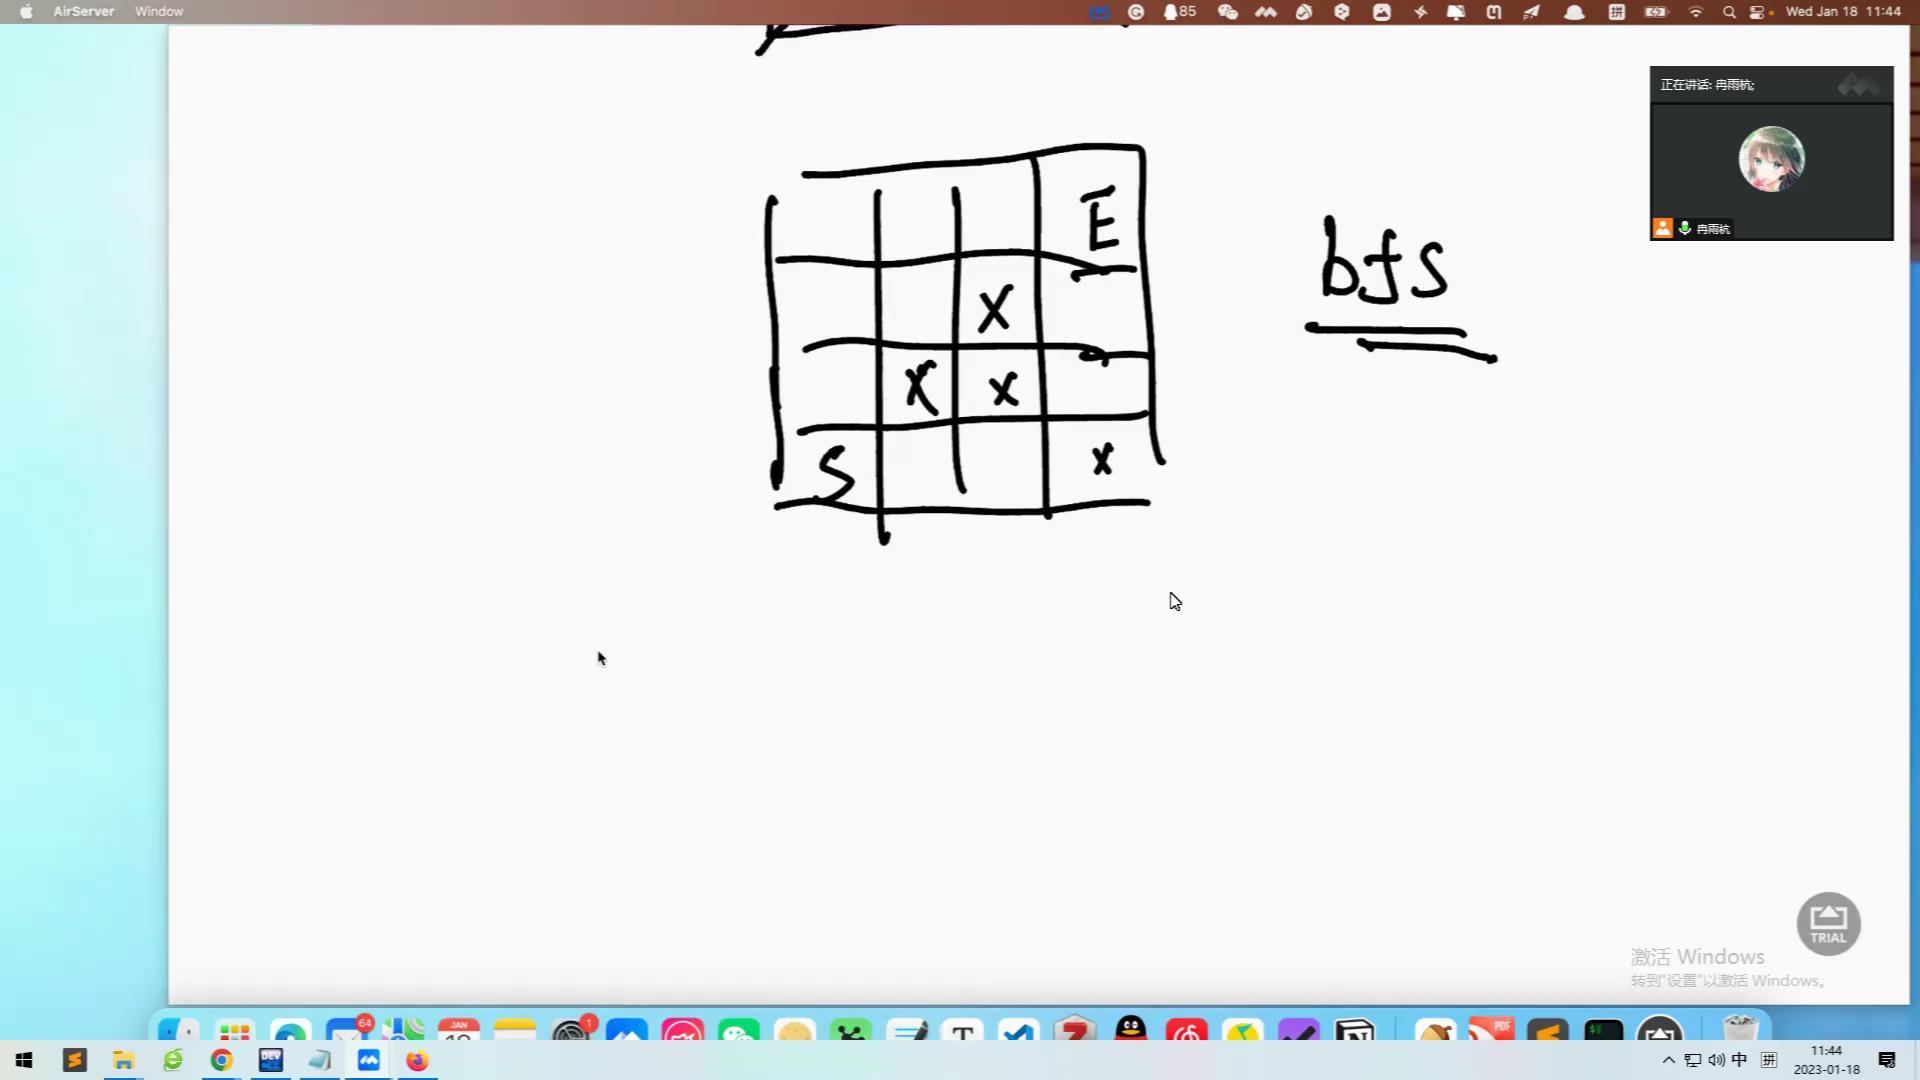 AirServer Window 85 拼 Wed Jan 18 11:44
正在讲话: 冉雨杭;
冉雨杭
E
bfs
X
X X
S X
TRIAL
激活 Windows
转到“设置”以激活 Windows。
64 JAN 1 T Z PDF $
DEV 中 拼 11:44
2023-01-18